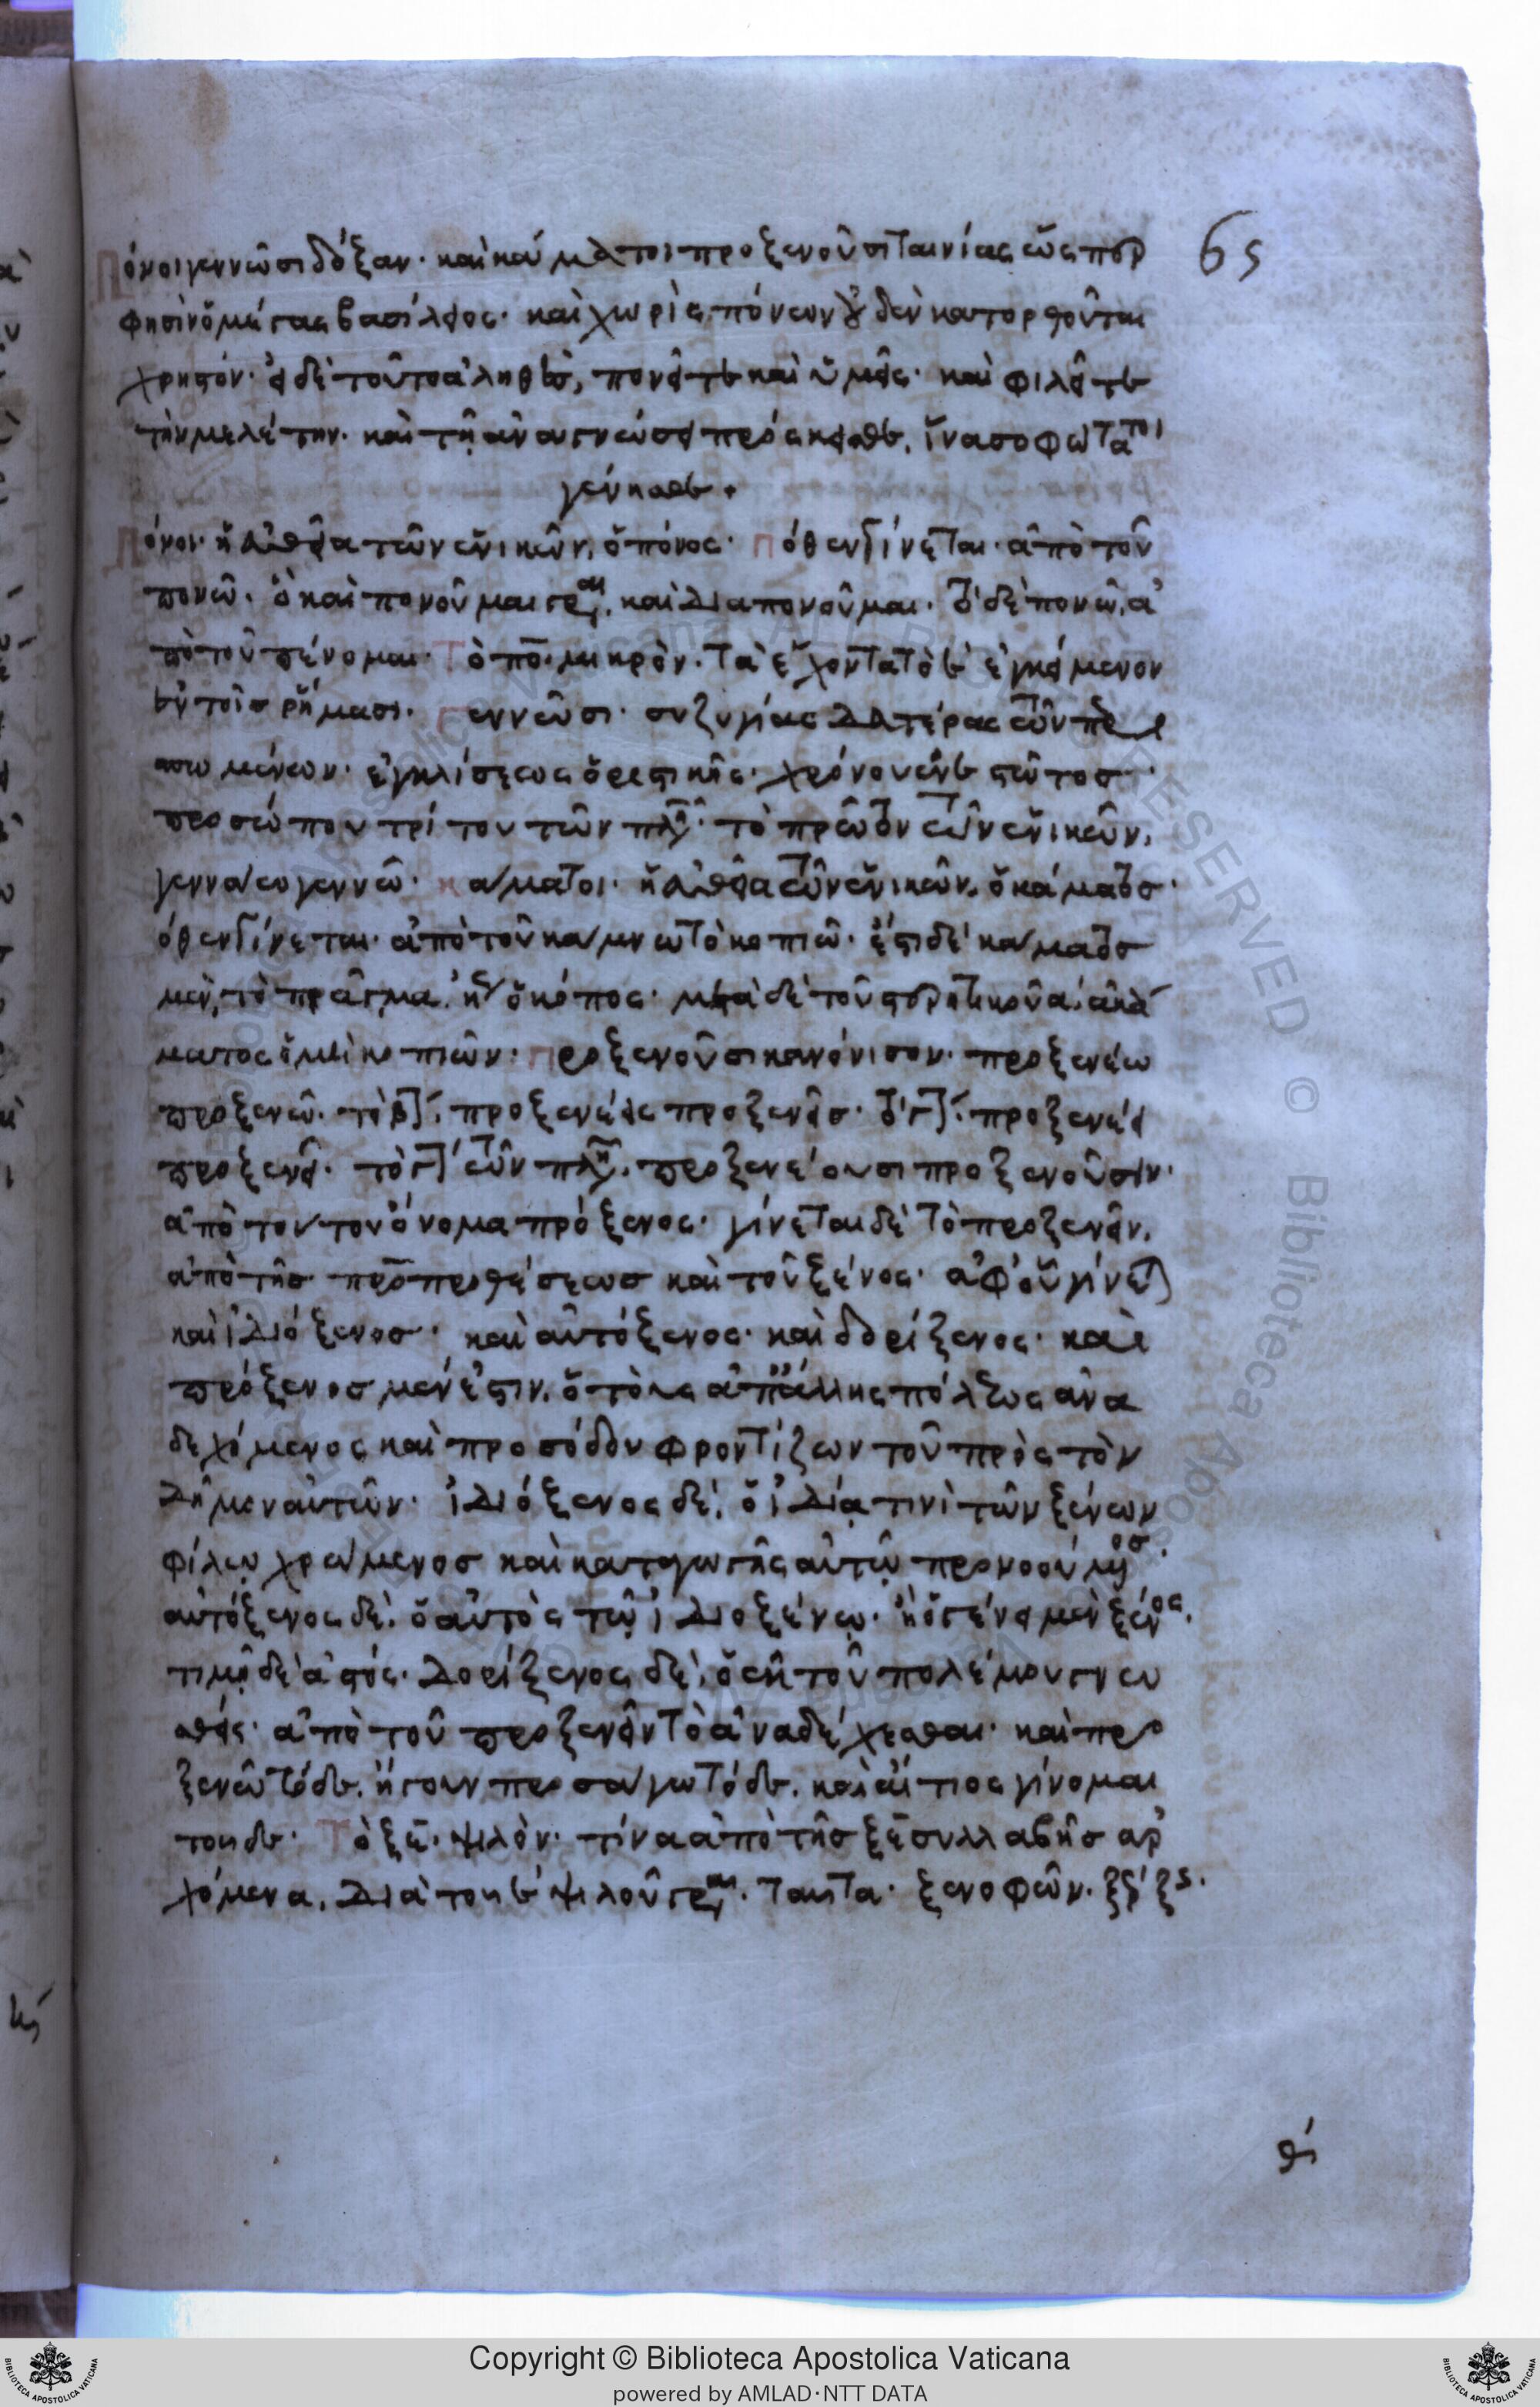 65
Πόνοι γεννῶσι δόξαν· καὶ κάματοι προξενοῦσι ταινίας ὥσπερ
φησὶν ὁ μέγας βασίλειος· καὶ χωρὶς πόνων οὐδὲν κατορθοῦται
χρηστόν· εἰ δὲ τοῦτο ἀληθὲς, πονεῖτε καὶ ὑμεῖς· καὶ φιλεῖτε
τὴν μελέτην· καὶ τῇ ἀναγνώσει πρόσκεισθε, ἵνα σοφώτατοι
γένησθε·
Πόνοι· ἡ εὐθεῖα τῶν ἑνικῶν, ὁ πόνος· πόθεν γίνεται· ἀπὸ τοῦ
πονῶ· ὃ καὶ πονοῦμαι καὶ διαπονοῦμαι· τὸ δὲ πονῶ, ἀ
πὸ τοῦ πένομαι· Τὸ πο̅· μικρὸν· τὰ ἔχοντα τὸ ε ἐγκείμενον
ἐν τοῖς ῥήμασι· Γεννῶσι· συζυγίας δευτέρας τῶν περι
σπωμένων· ἐγκλίσεως ὁριστικῆς· χρόνου ἐνεστῶτος·
προσώπου τρίτου τῶν πλη· τὸ πρῶτον τῶν ἑνικῶν,
γεννάω γεννῶ· κάματοι· ἡ εὐθεῖα τῶν ἑνικῶν, ὁ κάματος·
όθεν γίνεται· ἀπὸ τοῦ κάμνω τὸ κοπιῶ· ἔστι δὲ κάματος
μὲν, τὸ πρᾶγμα, ἤγουν ὁ κόπος· μετὰ δὲ τοῦ στερητικοῦ α, ἀκά
ματος ὁ μὴ κοπιῶν· προξενοῦσι κανόνισον· προξενέω
προξενῶ· τὸ β· προξενέεις προξενεῖς· τὸ γ· προξενέει
προξενεῖ· τὸ γ τῶν πλη· προξενέουσι προξενοῦσιν·
ἀπὸ τούτου ὄνομα πρόξενος· γίνεται δὲ τὸ προξενεῖν,
ἀπὸ τῆς προ̅ προθέσεως καὶ τοῦ ξένος· ἀφ' οὗ γίνεται
καὶ ἰδιόξενος· καὶ αὐτόξενος· καὶ δορίξενος· καὶ
πρόξενος μέν ἐστιν, ὁ τοὺς ἀπ' ἄλλης πόλεως ἀνα
δεχόμενος καὶ προσόδον φροντίζων τοῦ πρὸς τὸν
δῆμον αὐτῶν· ἰδιόξενος δὲ, ὁ ἰδίᾳ τινὶ τῶν ξένων
φίλῳ χρώμενος καὶ καταγωγῆς αὐτῷ προνοούμενος·
αὐτόξενος δὲ, ὁ αὐτὸς τῷ ἰδιοξένῳ· ἢ ὁ γένει μὲν ξένος,
τιμῇ δὲ ἀστός· Δορίξενος δὲ, ὁ ἐκ τοῦ πολέμου γνω
σθείς· ἀπὸ τοῦ προξενεῖν τὸ ἀναδέχεσθαι· καὶ προ
ξενῶ τόδε, ἤγουν προσάγω τόδε, καὶ αἴτιος γίνομαι
τοῦδε· Τὸ ξε̅· ψιλὸν· τίνα ἀπὸ τῆς ξε̅ συλλαβῆς ἀρ
χόμενα, διὰ τοῦ ε ψιλοῦ ταῦτα· ξενοφῶν·
θι